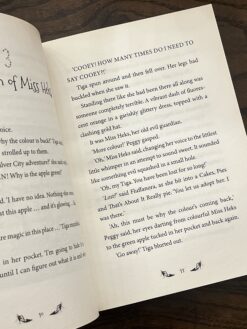 3
n of Miss Heks
voice.
why the colour is back!' Tiga
scrolled up to them.
Silver City adventure' she said
EN! Why is the apple green?
'I have no idea. Nothing she
at this apple ... and it's glowing
re magic in this place ...' Tiga
in her pocket. 'I'm going to keep
until I can figure out what is
'COOEY! HOW MANY TIMES DO I NEED TO
SAY COOEY?!'
Tiga spun around and then fell over. Her legs had
buckled when she saw it.
Standing there like she had been there all along was
someone completely terrible. A vibrant dash of fluores-
cent orange in a garishly glittery dress, topped with a
clashing gold hat.
It was Miss Heks, her old evil guardian.
'More colour!' Peggy gasped.
'Oh,' Miss Heks said, changing her voice to the littlest
little whimper in an attempt to sound sweet. It sounded
like something evil squashed in a small hole.
'Oh, my Tiga. You have been lost for so long!'
'Lost!' said Fluffanora, as she hit into a Cakes, Pies
and That's About It Really pie. 'You let us adopt her. I
was there.'
'Ah, this must be why the colour's coming back,'
Peggy said, her eyes darting from colourful Miss Heks
to the green apple tucked in her pocket and back again.
'Go away!' Tiga blurted out.
11